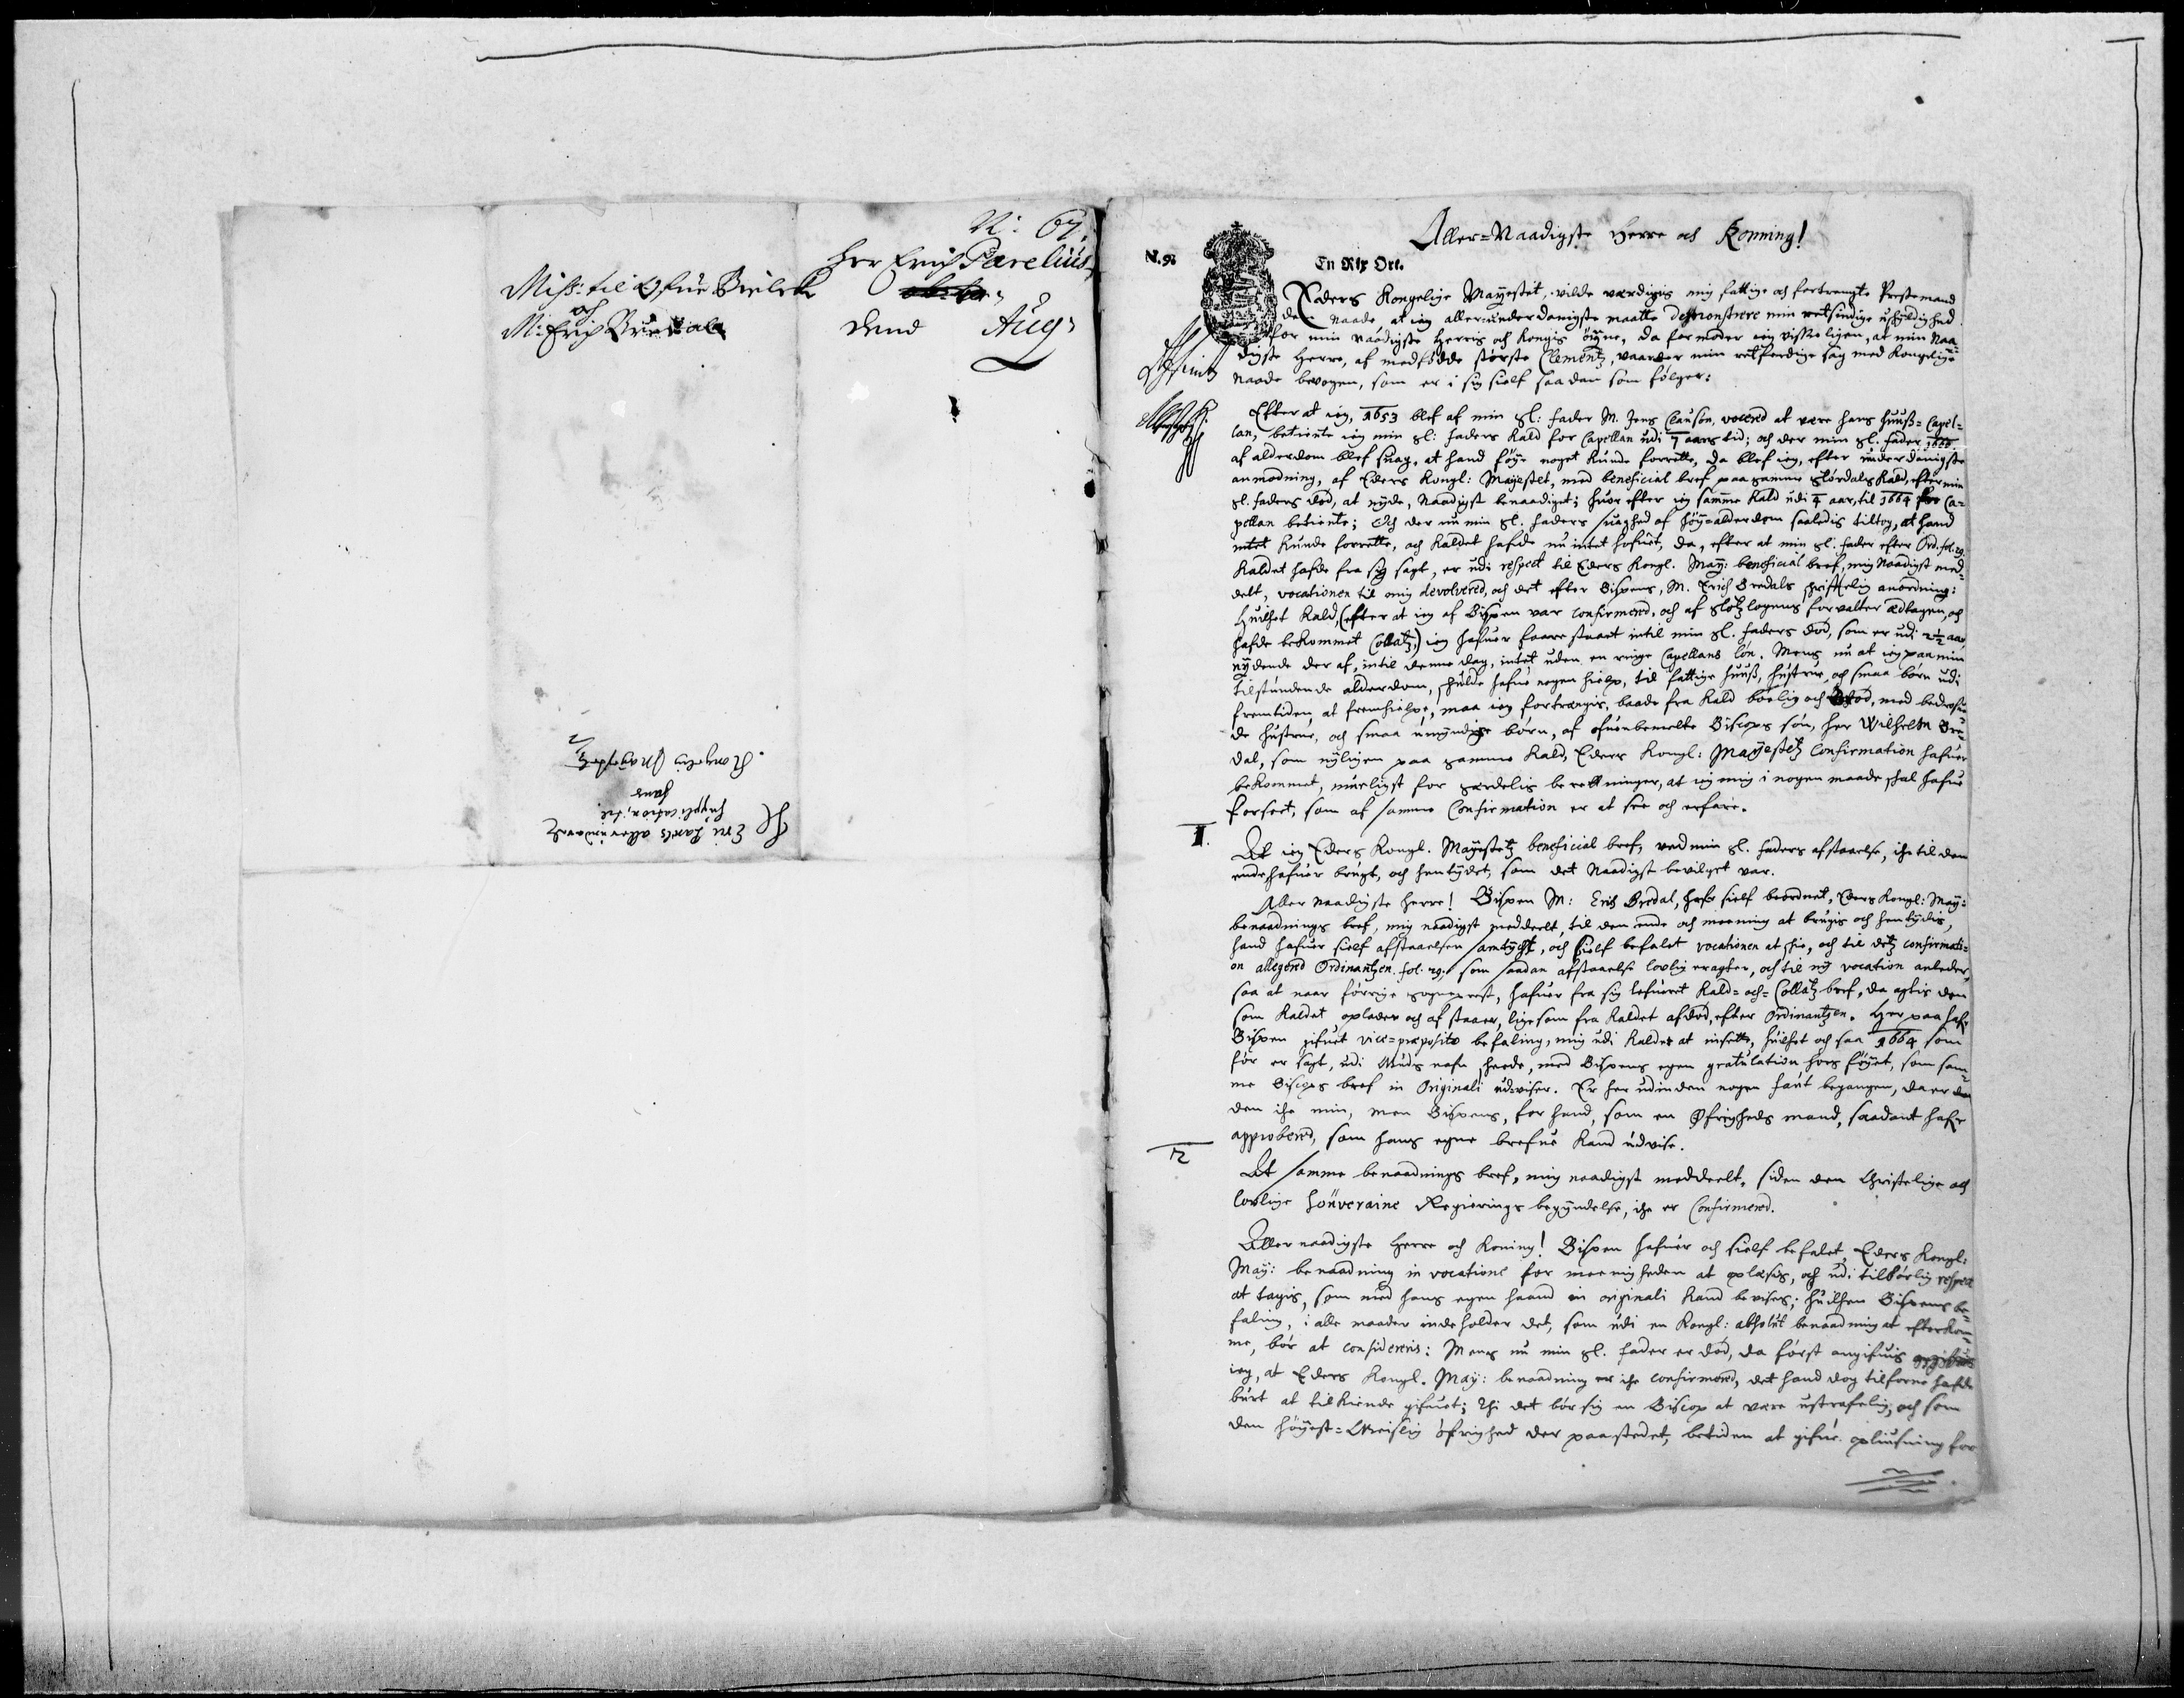 N: 67.
Her Erich Parelius
Miss: til Ofue Bielck
och
M: Erich Bredal
dend Aug:
H Erii Parels allerunder
supplication, til
hans
Kongelig Mayestetz
Aller-Naadigste Herre och Konning!
N. 98
En Rix Ort.
Eders Kongelige Mayestet, vilde værdigis mig fattige och fortrengte Prestemand
de naade, at ieg allerunderdanigste maatte demonstrere min retsindige uskyldighed
for min Naadigste Herris och Kongis öyne, da formoder ieg visseligen, at min Naa-
digste Herre, af medfödde störste Clementz, vaarder min retferdige sag med Kongelige
Naade bevogen, som er i sig sielf saadan som fölger:
Efter at ieg, 1653 blef af min Sl: fader M. Jens Clausön, vocered at være hans huuss-Capel-
lan, betiente ieg min Sl: faders Kald for Capellan udi 7 aars tid; och der min Sl. fader 1660
af alderdom blef suag, at hand föye noget kunde forrette, da blef ieg, efter underdanigste
anmodning, af Eders Kongl: Mayestet, med beneficial bref paa samme Stördals Kald, efter min
Sl. faders död, at nyde, Naadigst benaadiget; huor efter ieg samme Kald udi 4 aar, til 1664 for Ca-
pellan betiente; Och der nu min Sl. faders suaghed af höy-alderdom saaledis tiltog, at hand
intet kunde forrette, och Kaldet hafde nu intet hofuet, da, efter at min Sl. fader efter Ord. fol. 29.
Kaldet hafde fra sig sagt, er udi respect til Eders Kongl. May: beneficial bref, mig Naadigst med-
delt, vocationen til mig devolvered, och det efter Bispens, M. Erich Bredals skriftelig anordning:
Huilket Kald, (efter at ieg af Bispen var confirmered, och af Slotzlogens forvalter edtagen, och
hafde bekommet Collatz) ieg hafuer forrestaaet intil min Sl. faders död, som er udi 2½ aar,
nydende der af, intil denne dag, intet uden en ringe Capellans lön. Mens nu at ieg paa min
tilstundende alderdom, skulde hafue nogen hielp, til fattige huuss, hustrue och smaa börn udi
fremtiden at fremhielpe, maa ieg fortrengis, baade fra Kald bolig och bröd, med bedröfue-
de hustrue, och smaa umyndige börn, af ofuenbemelte Biscops sön, her Wilhelm Bre-
dal, som nyligen paa samme Kald, Eders Kongl: Mayestetz Confirmation hafuer
bekommet, nemligst for særdelis berettninger, at ieg mig i nogen maade skal hafue
forseet, som af samme Confirmation er at see och erfare.
1.
At ieg Eders Kongl. Mayestetz beneficial bref, ved min Sl. faders afstaaelse, iche til den
ende hafuer brugt, och hentydet, som det Naadigst bevilget var.
Aller Naadigste Herre! Bispen M: Erich Bredal, hafr sielf beordnet, Eders Kongl: May:
benaadnings bref, mig naadigst meddeelt, til den ende och meening at brugis och hentydis,
hand hafuer sielf afstaaelsen samtyckt, och sielf befalet vocationen at skee, och til detz confirmati-
on allegered Ordinantzen. fol. 29. som saadan afstaaelse lovlig eragter, och til ny vocation anleder,
saa at naar förrige sogneprest, hafuer fra sig lefueret Kald- och- Collatz bref, da agtis den
som Kaldet oplader och afstaaer, lige som fra Kaldet afdöd, efter Ordinantzen. Her paa hafr
Bispen gifuet vice-præposito befaling, mig udi Kaldet at insette, huilket och saa 1664 som
för er sagt, udi Guds nafn skeede, med Bispens egen gratulation hos föyet, som sam-
me Biscops bref in Originali udviser. Er her udinden nogen faut begangen, da er
den iche min, men Bispens, for hand, som en Öfrigheds mand, saadant hafr
approbered, som hans egne brefue kand udvise.
2
At samme benaadnings bref, mig naadigst meddeelt, siden den Christelige och
lovlige Souveraine Regierings begyndelse, iche er Confirmered.
Allernaadigste Herre och Koning! Bispen hafuer och sielf befalet, Eders Kongl:
May: benaadning in vocatione for meenigheden at oplæsis, och udi tilbörlig respect
at tagis, som med hans egen haand in originali kand bevises; huilken Bispens be-
faling, i alle maader indeholder det, som udi en Kongl: absolut benaadning at efterkom-
me, bör at considereris: Mens nu min Sl. fader er död, da först angifuis
ieg, at Eders Kongl. May: benaadning er iche confirmered, det hand dog tilforne hafde
burt at tilkiende gifuet; Thi det bör sig en Biscop at være ustrafelig, och som
den höyest-Geistlig öfrighed der paa stedet, betiden at gifue opliusning for